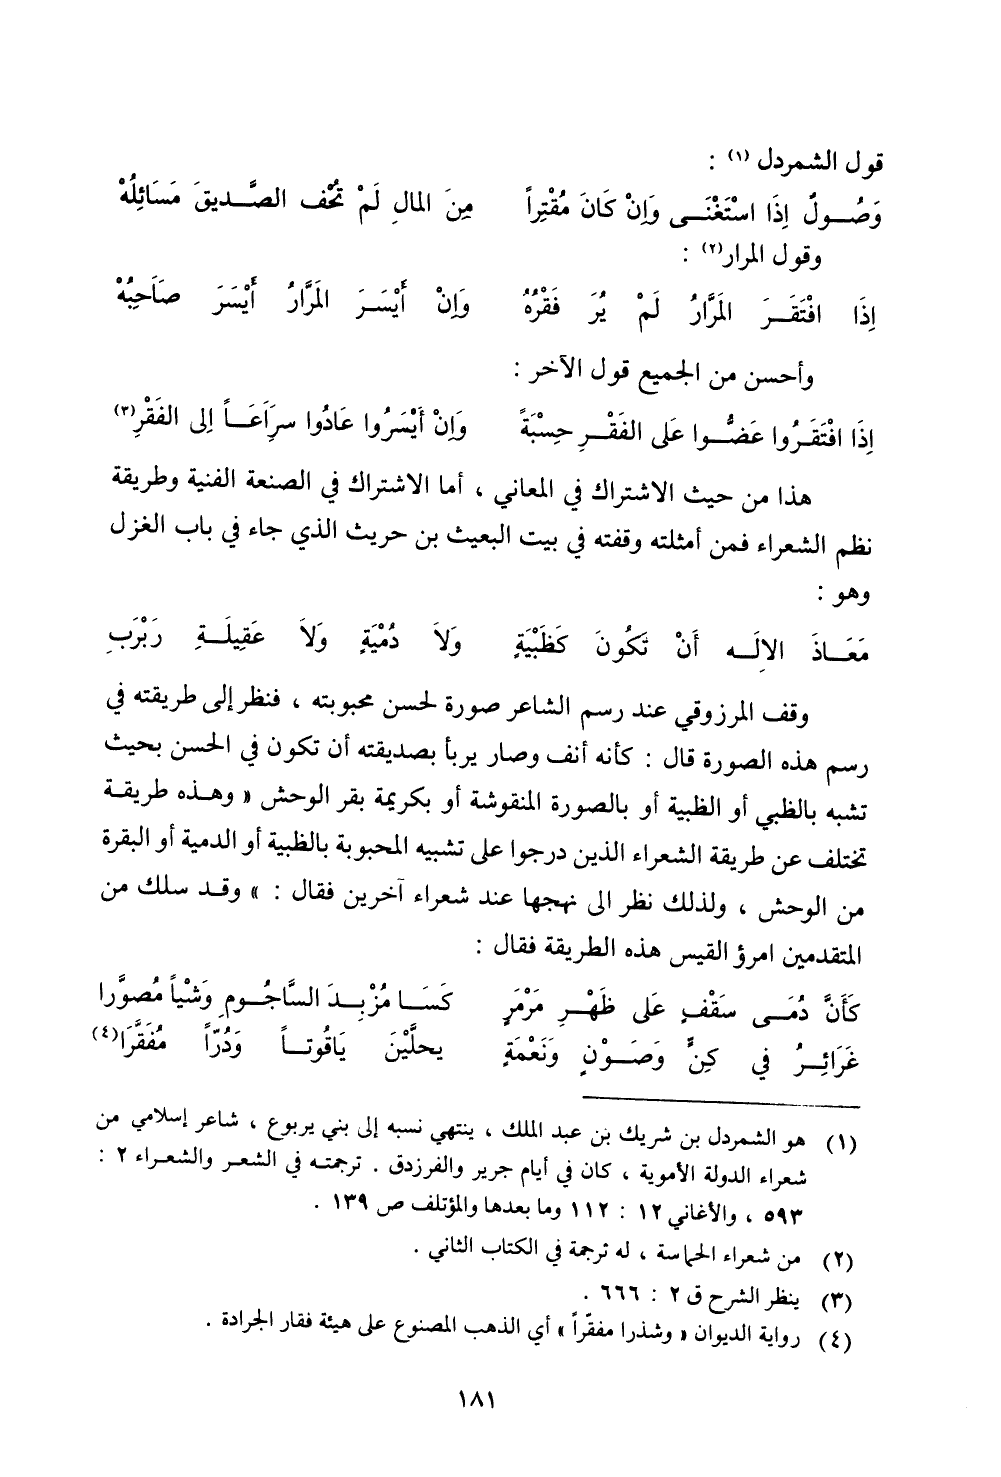 قول الشمردل (١) :
وَصُولٌ إِذَا اسْتَغْنَى وَإِنْ كَانَ مُقْتِراً مِنَ المَالِ لَمْ تُحْفِ الصَّدِيقَ مَسَائِلُهْ
وقول المرار(٢) :
إِذَا افْتَقَرَ المَرَّارُ لَمْ يُرَ فَقْرُهُ وَإِنْ أَيْسَرَ المَرَّارُ أَيْسَرَ صَاحِبُهْ
وأحسن من الجميع قول الآخر :
إِذَا افْتَقَرُوا عَضُّوا عَلَى الفَقْرِ حِسْبَةً وَإِنْ أَيْسَرُوا عَادُوا سِرَاعَاً إِلى الفَقْرِ(٣)
هذا من حيث الاشتراك في المعاني ، أما الاشتراك في الصنعة الفنية وطريقة
نظم الشعراء فمن أمثلته وقفته في بيت البعيث بن حريث الذي جاء في باب الغزل
وهو :
مَعَاذَ الإلَهِ أَنْ تَكُونَ كَظَبْيَةٍ وَلاَ دُمْيَةٍ وَلاَ عَقِيلَةِ رَبْرَبِ
وقف المرزوقي عند رسم الشاعر صورة لحسن محبوبته ، فنظر إلى طريقته في
رسم هذه الصورة قال : كأنه أنف وصار يربأ بصديقته أن تكون في الحسن بحيث
تشبه بالظبي أو الظبية أو بالصورة المنقوشة أو بكريمة بقر الوحش « وهذه طريقة
تختلف عن طريقة الشعراء الذين درجوا على تشبيه المحبوبة بالظبية أو الدمية أو البقرة
من الوحش ، ولذلك نظر الى نهجها عند شعراء آخرين فقال : » وقد سلك من
المتقدمين امرؤ القيس هذه الطريقة فقال :
كَأَنَّ دُمَى سَقْفٍ عَلى ظَهْرِ مَرْمَرٍ كَسَا مُزْبِدَ السَّاجُومِ وَشْياً مُصوَّرا
غَرَائِرُ في كِنٍّ وَصَوْنٍ وَنَعْمَةٍ يحلَّيْنَ يَاقُوتاً وَدُرّاً مُفَقَّرَا(٤)
(١) هو الشمردل بن شريك بن عبد الملك ، ينتهي نسبه إلى بني يربوع ، شاعر إسلامي من
شعراء الدولة الأموية ، كان في أيام جرير والفرزدق . ترجمته في الشعر والشعراء ٢ :
٥٩٣ ، والأغاني ١٢ : ١١٢ وما بعدها والمؤتلف ص ١٣٩ .
(٢) من شعراء الحماسة ، له ترجمة في الكتاب الثاني .
(٣) ينظر الشرح ق ٢ : ٦٦٦ .
(٤) رواية الديوان « وشذرا مفقّراً » أي الذهب المصنوع على هيئة فقار الجرادة .
١٨١